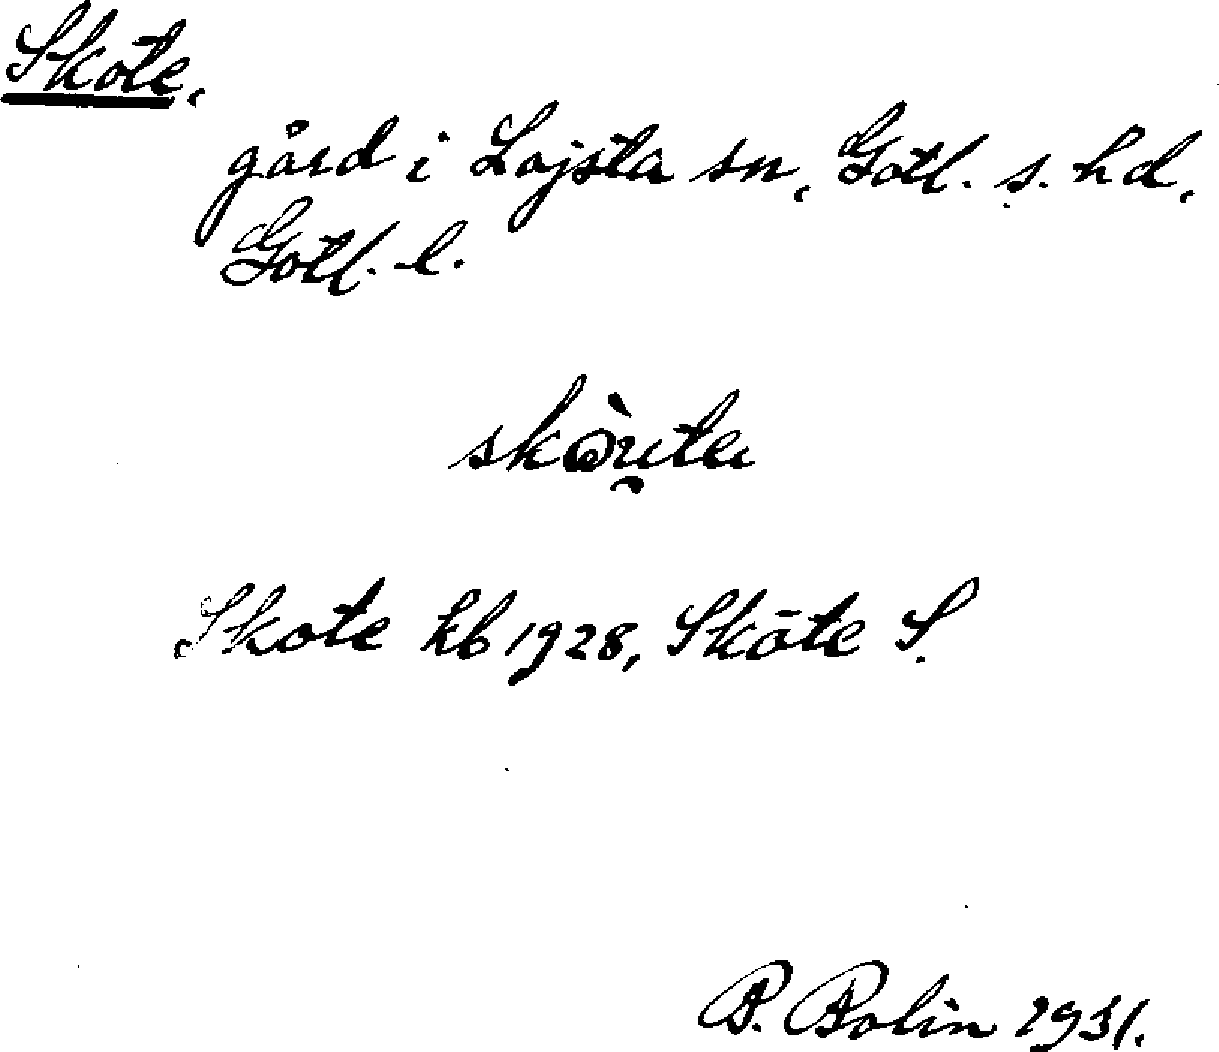 Skote,
gård i Lojsta sn, Gotl. s. hd,
Gotl. l.
Skote kb 1928, Skote S.
B. Bolin 1931.